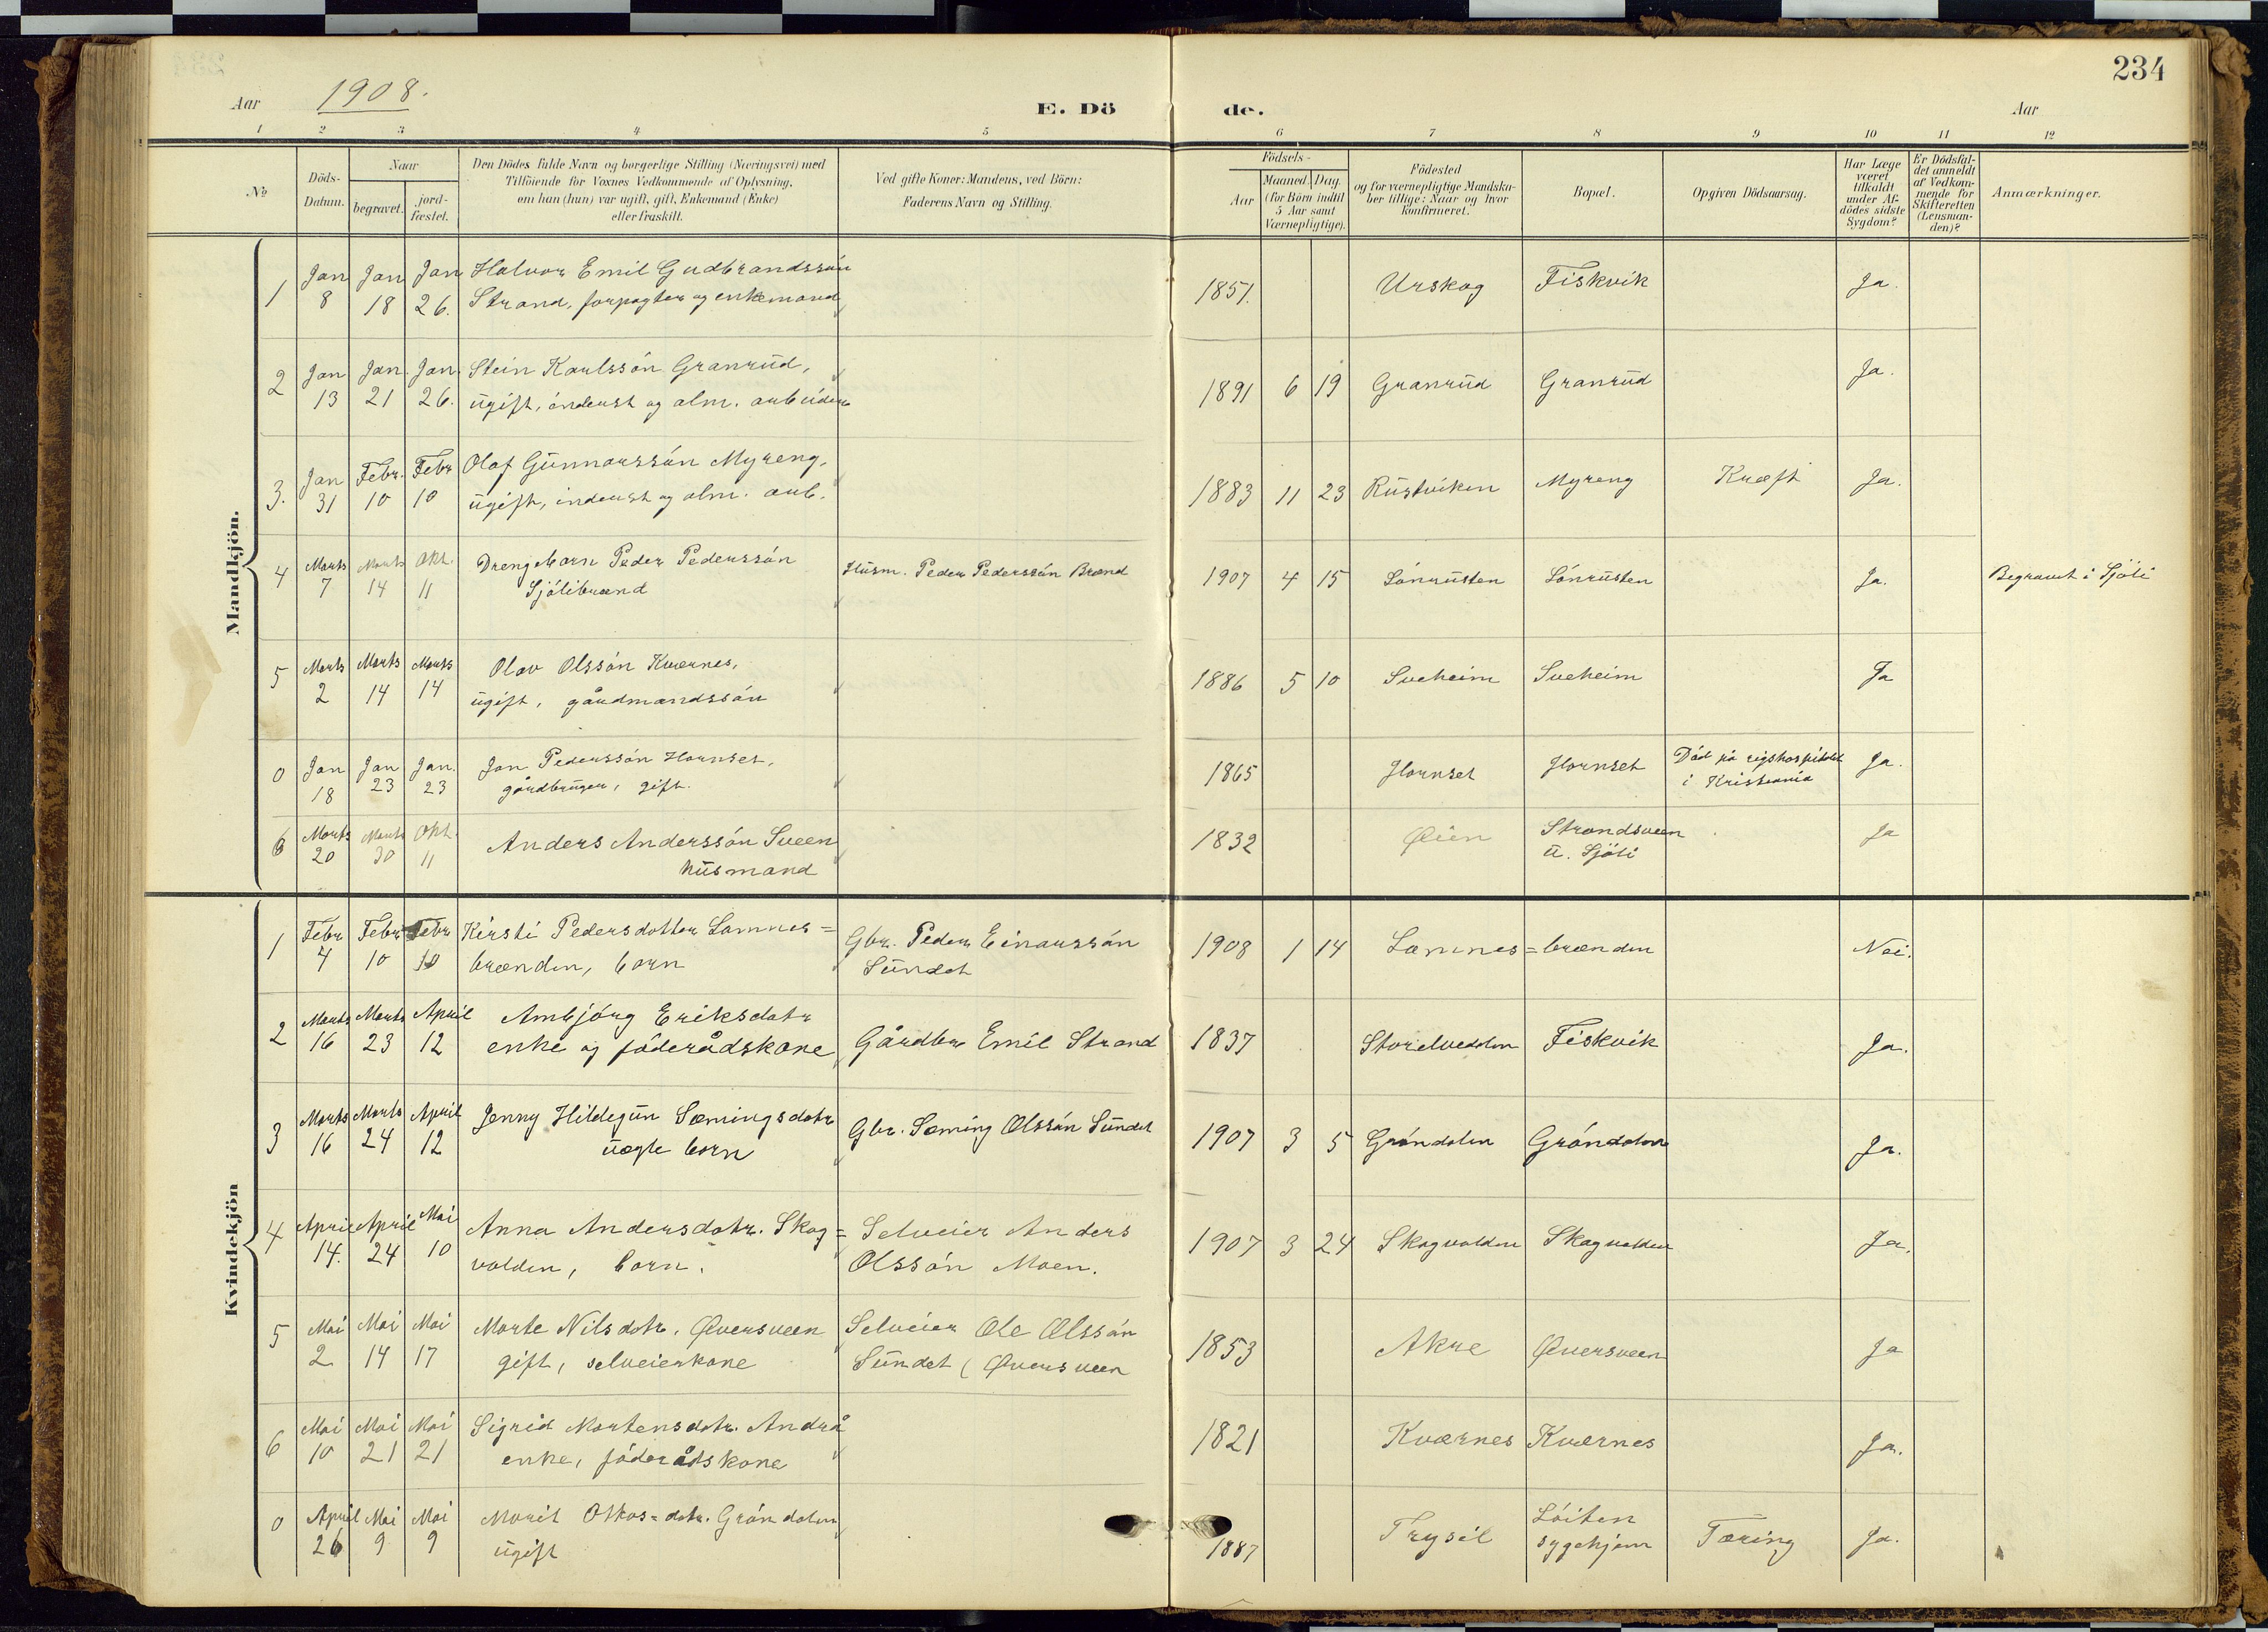 234
Aar 1908. E. Döde. Aar
1 2 3 4 5 6 7 8 9 10 11 12
No
Döds-Datum.
Naar
begravet.
jord-fæstet.
Den Dödes fulde Navn og borgerlige Stilling (Næringsvei) med
Tilföiende for Voxnes Vedkommende af Oplysning,
om han (hun) var ugift, gift, Enkemand (Enke)
eller fraskilt.
Ved gifte Koner: Mandens, ved Börn:
Faderens Navn og Stilling.
Födsels-
Aar
Maaned. Dag.
(for Börn indtil
5 Aar samt
Værnepligtige).
Födested
og for værnepligtige Mandska-
ber tillige: Naar og hvor
konfirmeret.
Bopæl.
Opgiven Dödsaarsag.
Har Læge
været
tilkaldt
under Af-
dödes sidste
Sygdom?
Er Dödsfal-
det anmeldt
af Vedkom-
mende for
Skifteretten
(Lensman-
den)?
Anmærkninger.
Mandkjön.
1 Jan 8 Jan 18 Jan 26. Halvor Emil Gudbrandssón
Strand, forpagter og enkemand 1851. Urskog Fiskvik Ja.
2 Jan 13 Jan. 21 Jan. 26. Stein Karlssón Granrud,
ugift, inderst og alm. arbeider 1891 6 19 Granrud Granrud Ja.
3. Jan 31 Febr. 10 Febr 10 Olaf Gunnarssón Myreng,
ugift, inderst og alm. arb. 1883 11 23 Rustviken Myreng Kræft Ja.
4 Marts 7 Marts 14 Okt. 11 Drengebarn Peder Pederssón
Sjólibrænd Husm. Peder Pederssón Brænd 1907 4 15 Lónrusten Lónrusten Ja. Begravet i Sjóli
5 Marts 2 Marts 14 Marts 14 Olav Olssón Kværnes,
ugift, gårdmandssón 1886 5 10 Sveheim Sveheim Ja
0 Jan 18 Jan 23 Jan. 23 Jon Pederssón Hornset,
gårdbruger, gift. 1865 Hornset Hornset Dód på rigshospitalet
i Kristiania Ja.
6 Marts 20 Marts 30 Okt. 11 Anders Anderssón Sveen
husmand 1832 Øien Strandsveen
u. Sjóli Ja
Kvindekjön
1 Febr 4 Febr 10 Febr 10 Kirsti Pedersdotter Lomnes=
brænden, barn Gbr. Peder Einarssón
Sundet 1908 1 14 Lomnes=brænden Nei.
2 Marts 16 Marts 23 April 12 Ambjórg Eriksdotr
enke og fóderådskone Gårdbr Emil Strand 1837 Storelvedalen Fiskvik Ja.
3 Marts 16 Marts 24 April 12 Jenny Hildegun Sæmingsdotr
uægte barn Gbr. Sæming Olssón Sundet 1907 3 5 Gróndalen Gróndalen Ja.
4 April 14. April 24 Mai 10 Anna Andersdotr. Skog=
volden, barn. Selveier Anders
Olssón Moen. 1907 3 24 Skogvolden Skogvolden Ja.
5 Mai 2 Mai 14 Mai 17 Marte Nilsdotr. Øversveen
gift, selveierkone Selveier Ole Olssón
Sundet (Øversveen 1853 Akre Øversveen Ja
6 Mai 10 Mai 21 Mai 21 Sigrid Mortensdotr. Andrå
enke, fóderådskone 1821 Kværnes Kværnes Ja.
0 April 26 Mai 9 Mai 9 Marit dotr. Gróndalen
ugift 1887 Trysil Lóiten
sygehjem Tæring Ja.